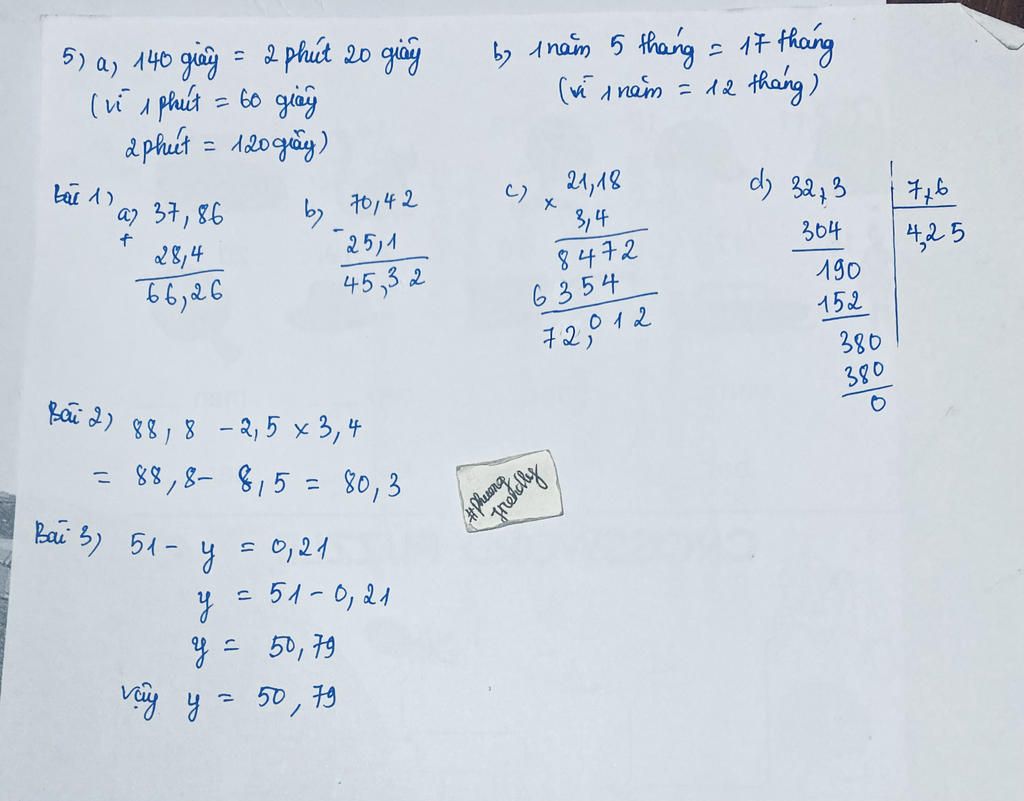 5) a, 140 giây = 2 phút 20 giây
(vì 1 phút = 60 giây
2 phút = 120 giây)
b, 1 năm 5 tháng = 17 tháng
(vì 1 năm = 12 tháng)
Bài 1)
a, 37,86
+
28,4
66,26
b, 70,42
-
25,1
45,32
c, 21,18
x
3,4
8472
6354
72,012
d, 32,3 7,6
304 4,25
190
152
380
380
0
Bài 2) 88,8 - 2,5 x 3,4
= 88,8 - 8,5 = 80,3
#phuong
friendly
Bài 3) 51 - y = 0,21
y = 51 - 0,21
y = 50,79
vậy y = 50,79